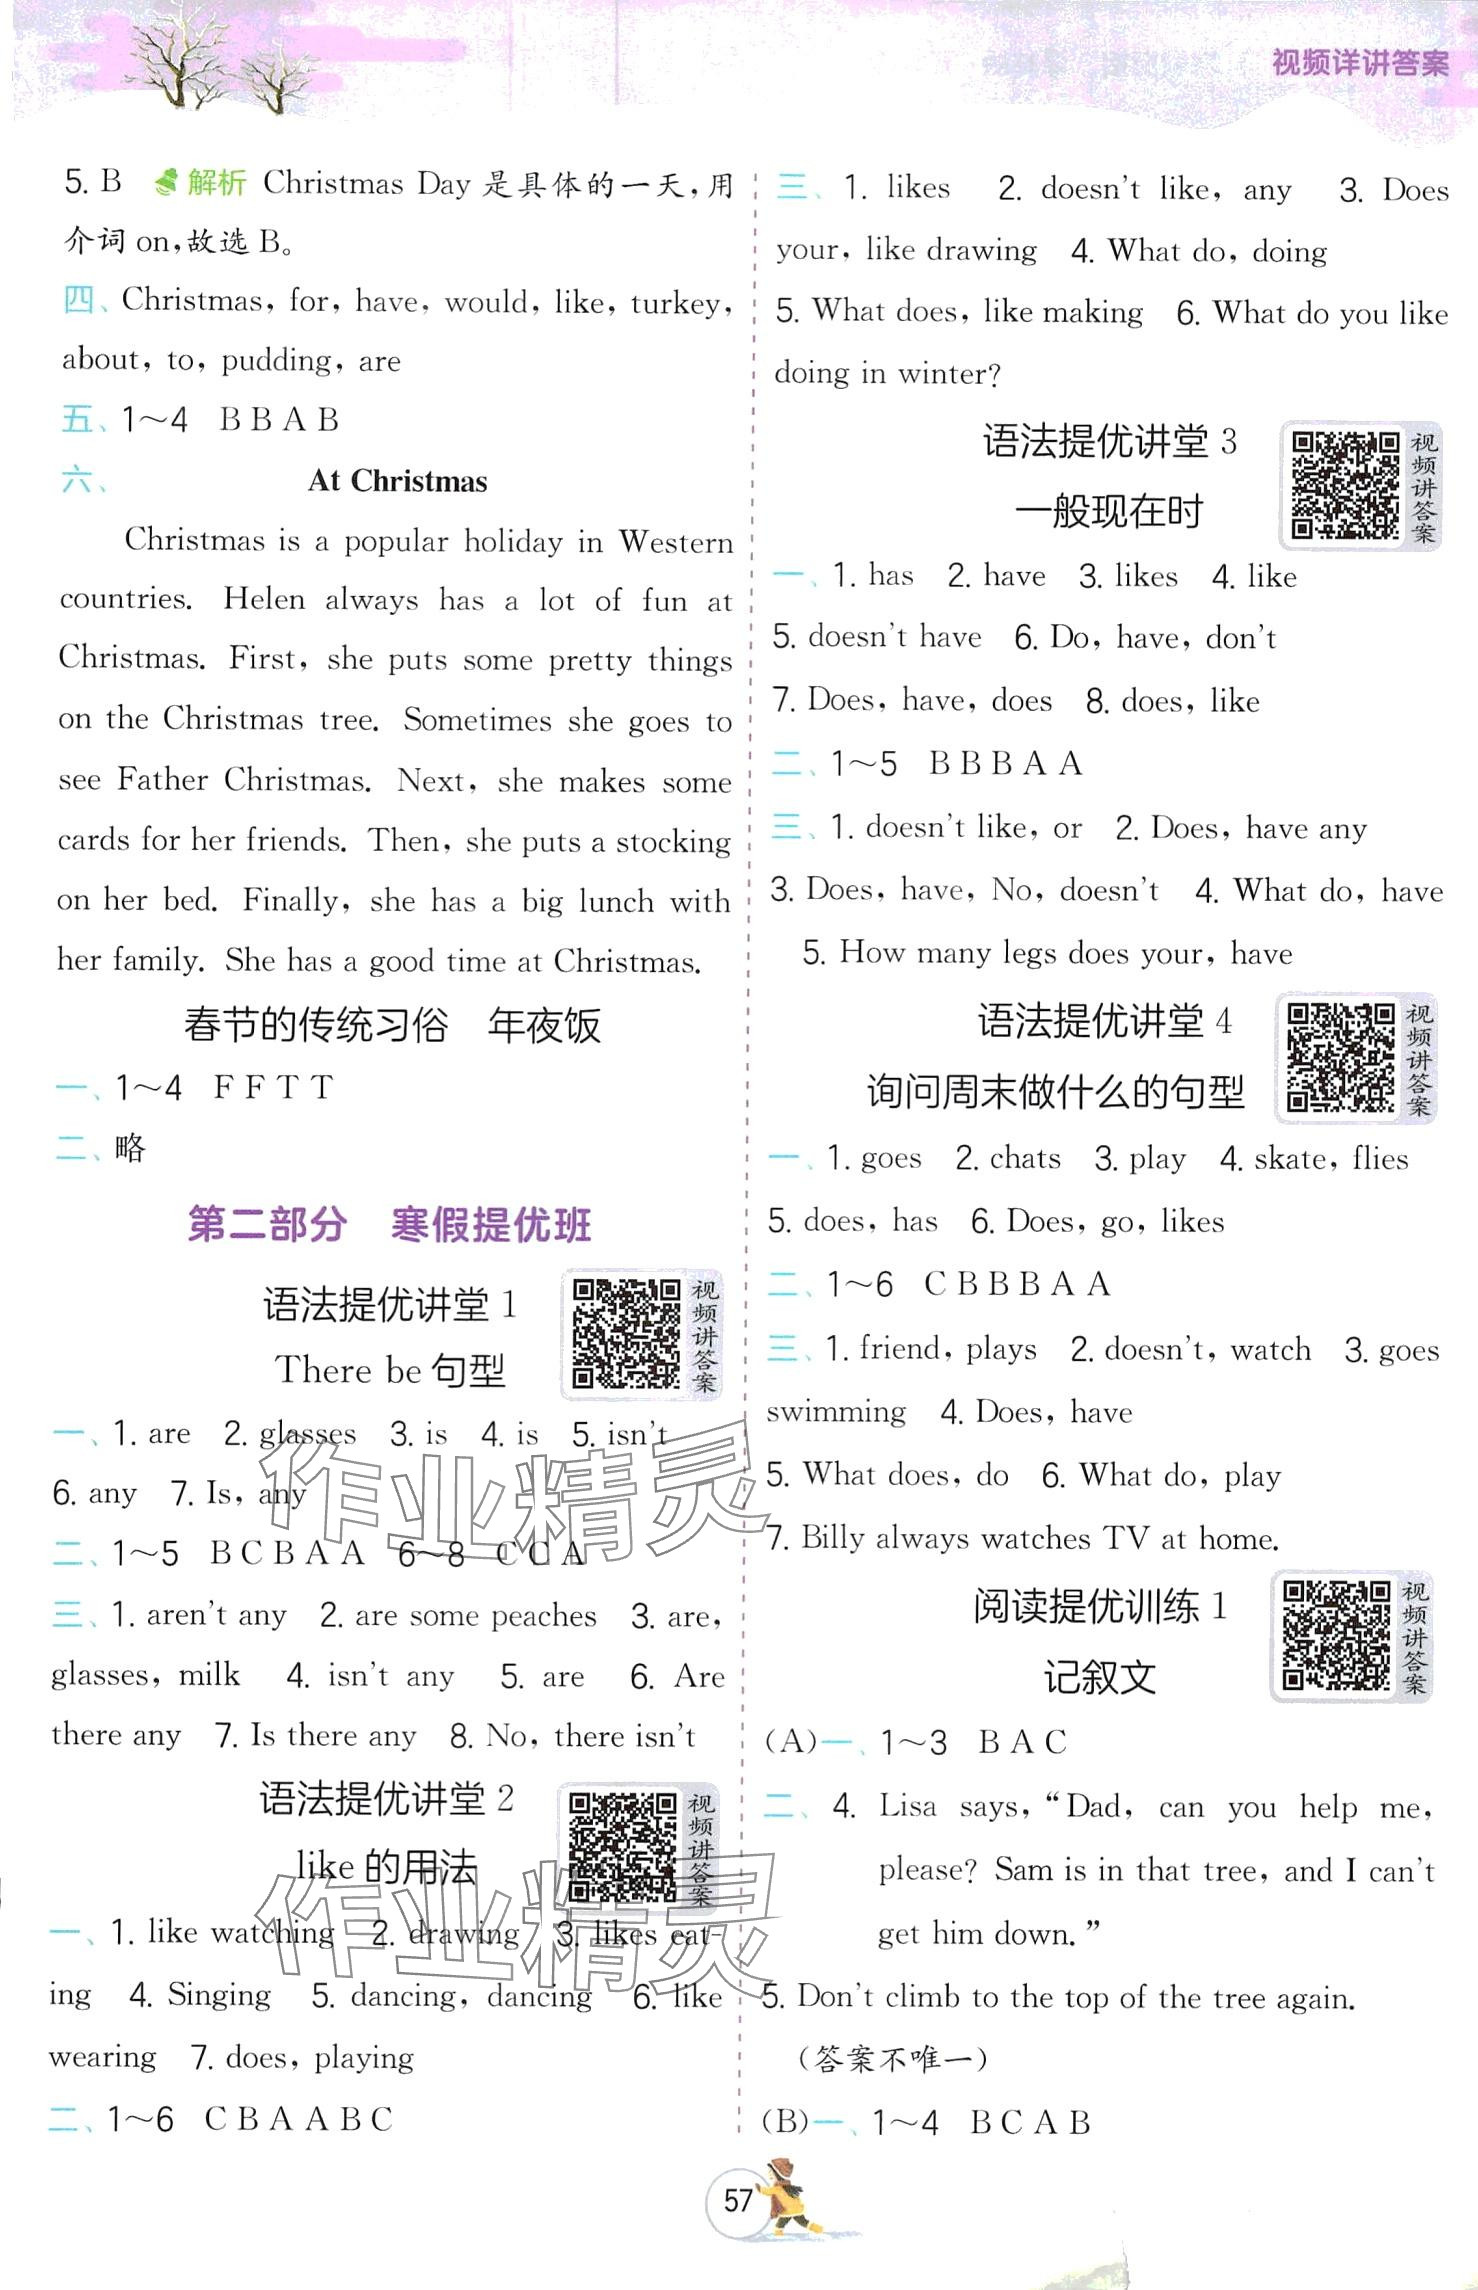 视频详讲答案
5. B 解析 Christmas Day 是具体的一天,用
介词 on,故选 B。
四、Christmas, for, have, would, like, turkey,
about, to, pudding, are
五、1～4 B B A B
六、 At Christmas
Christmas is a popular holiday in Western
countries. Helen always has a lot of fun at
Christmas. First, she puts some pretty things
on the Christmas tree. Sometimes she goes to
see Father Christmas. Next, she makes some
cards for her friends. Then, she puts a stocking
on her bed. Finally, she has a big lunch with
her family. She has a good time at Christmas.
春节的传统习俗 年夜饭
一、1～4 F F T T
二、略
第二部分 寒假提优班
语法提优讲堂 1
There be 句型
视频讲答案
一、1. are 2. glasses 3. is 4. is 5. isn't
6. any 7. Is, any
二、1～5 B C B A A 6～8 C C A
三、1. aren't any 2. are some peaches 3. are,
glasses, milk 4. isn't any 5. are 6. Are
there any 7. Is there any 8. No, there isn't
语法提优讲堂 2
like 的用法
视频讲答案
一、1. like watching 2. drawing 3. likes eat-
ing 4. Singing 5. dancing, dancing 6. like
wearing 7. does, playing
二、1～6 C B A A B C
三、1. likes 2. doesn't like, any 3. Does
your, like drawing 4. What do, doing
5. What does, like making 6. What do you like
doing in winter?
语法提优讲堂 3
一般现在时
视频讲答案
一、1. has 2. have 3. likes 4. like
5. doesn't have 6. Do, have, don't
7. Does, have, does 8. does, like
二、1～5 B B B A A
三、1. doesn't like, or 2. Does, have any
3. Does, have, No, doesn't 4. What do, have
5. How many legs does your, have
语法提优讲堂 4
询问周末做什么的句型
视频讲答案
一、1. goes 2. chats 3. play 4. skate, flies
5. does, has 6. Does, go, likes
二、1～6 C B B B A A
三、1. friend, plays 2. doesn't, watch 3. goes
swimming 4. Does, have
5. What does, do 6. What do, play
7. Billy always watches TV at home.
阅读提优训练 1
记叙文
视频讲答案
(A)一、1～3 B A C
二、4. Lisa says, “Dad, can you help me,
please? Sam is in that tree, and I can't
get him down.”
5. Don't climb to the top of the tree again.
(答案不唯一)
(B)一、1～4 B C A B
57
作业精灵
作业精灵